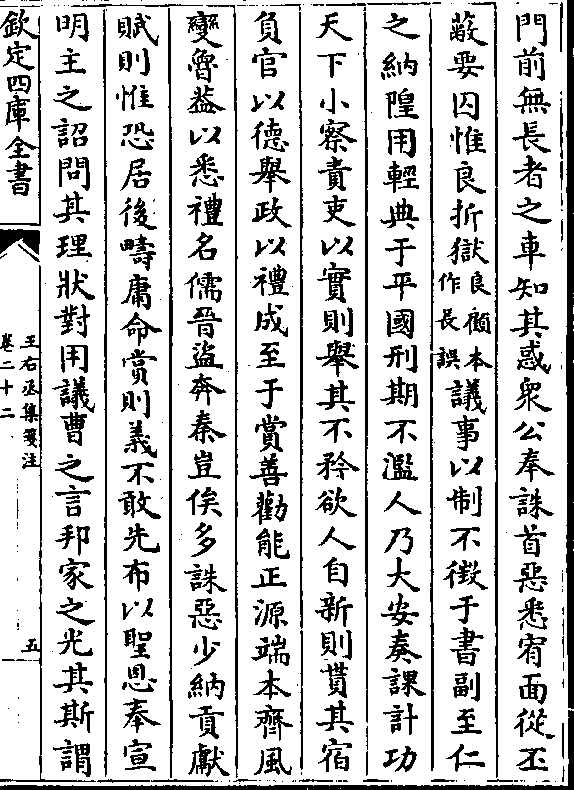 門前無長者之車知其惑衆公奉誅首惡悉宥面從丕
蔽要囚惟良折獄良顧本作長誤議事以制不徴于書副至仁
之納隍用輕典于平國刑期不濫人乃大安奏課計功
天下小察責吏以實則舉其不矜欲人自新則貰其宿
負官以德舉政以禮成至于賞善勸能正源端本齊風
變魯益以悉禮名儒晉盜奔秦豈俟多誅惡少納貢獻
賦則惟恐居後疇庸命賞則義不敢先布以聖恩奉宣
明主之詔問其理狀對用議曹之言邦家之光其斯謂
欽定四庫全書
王右丞集箋注
卷二十二
五